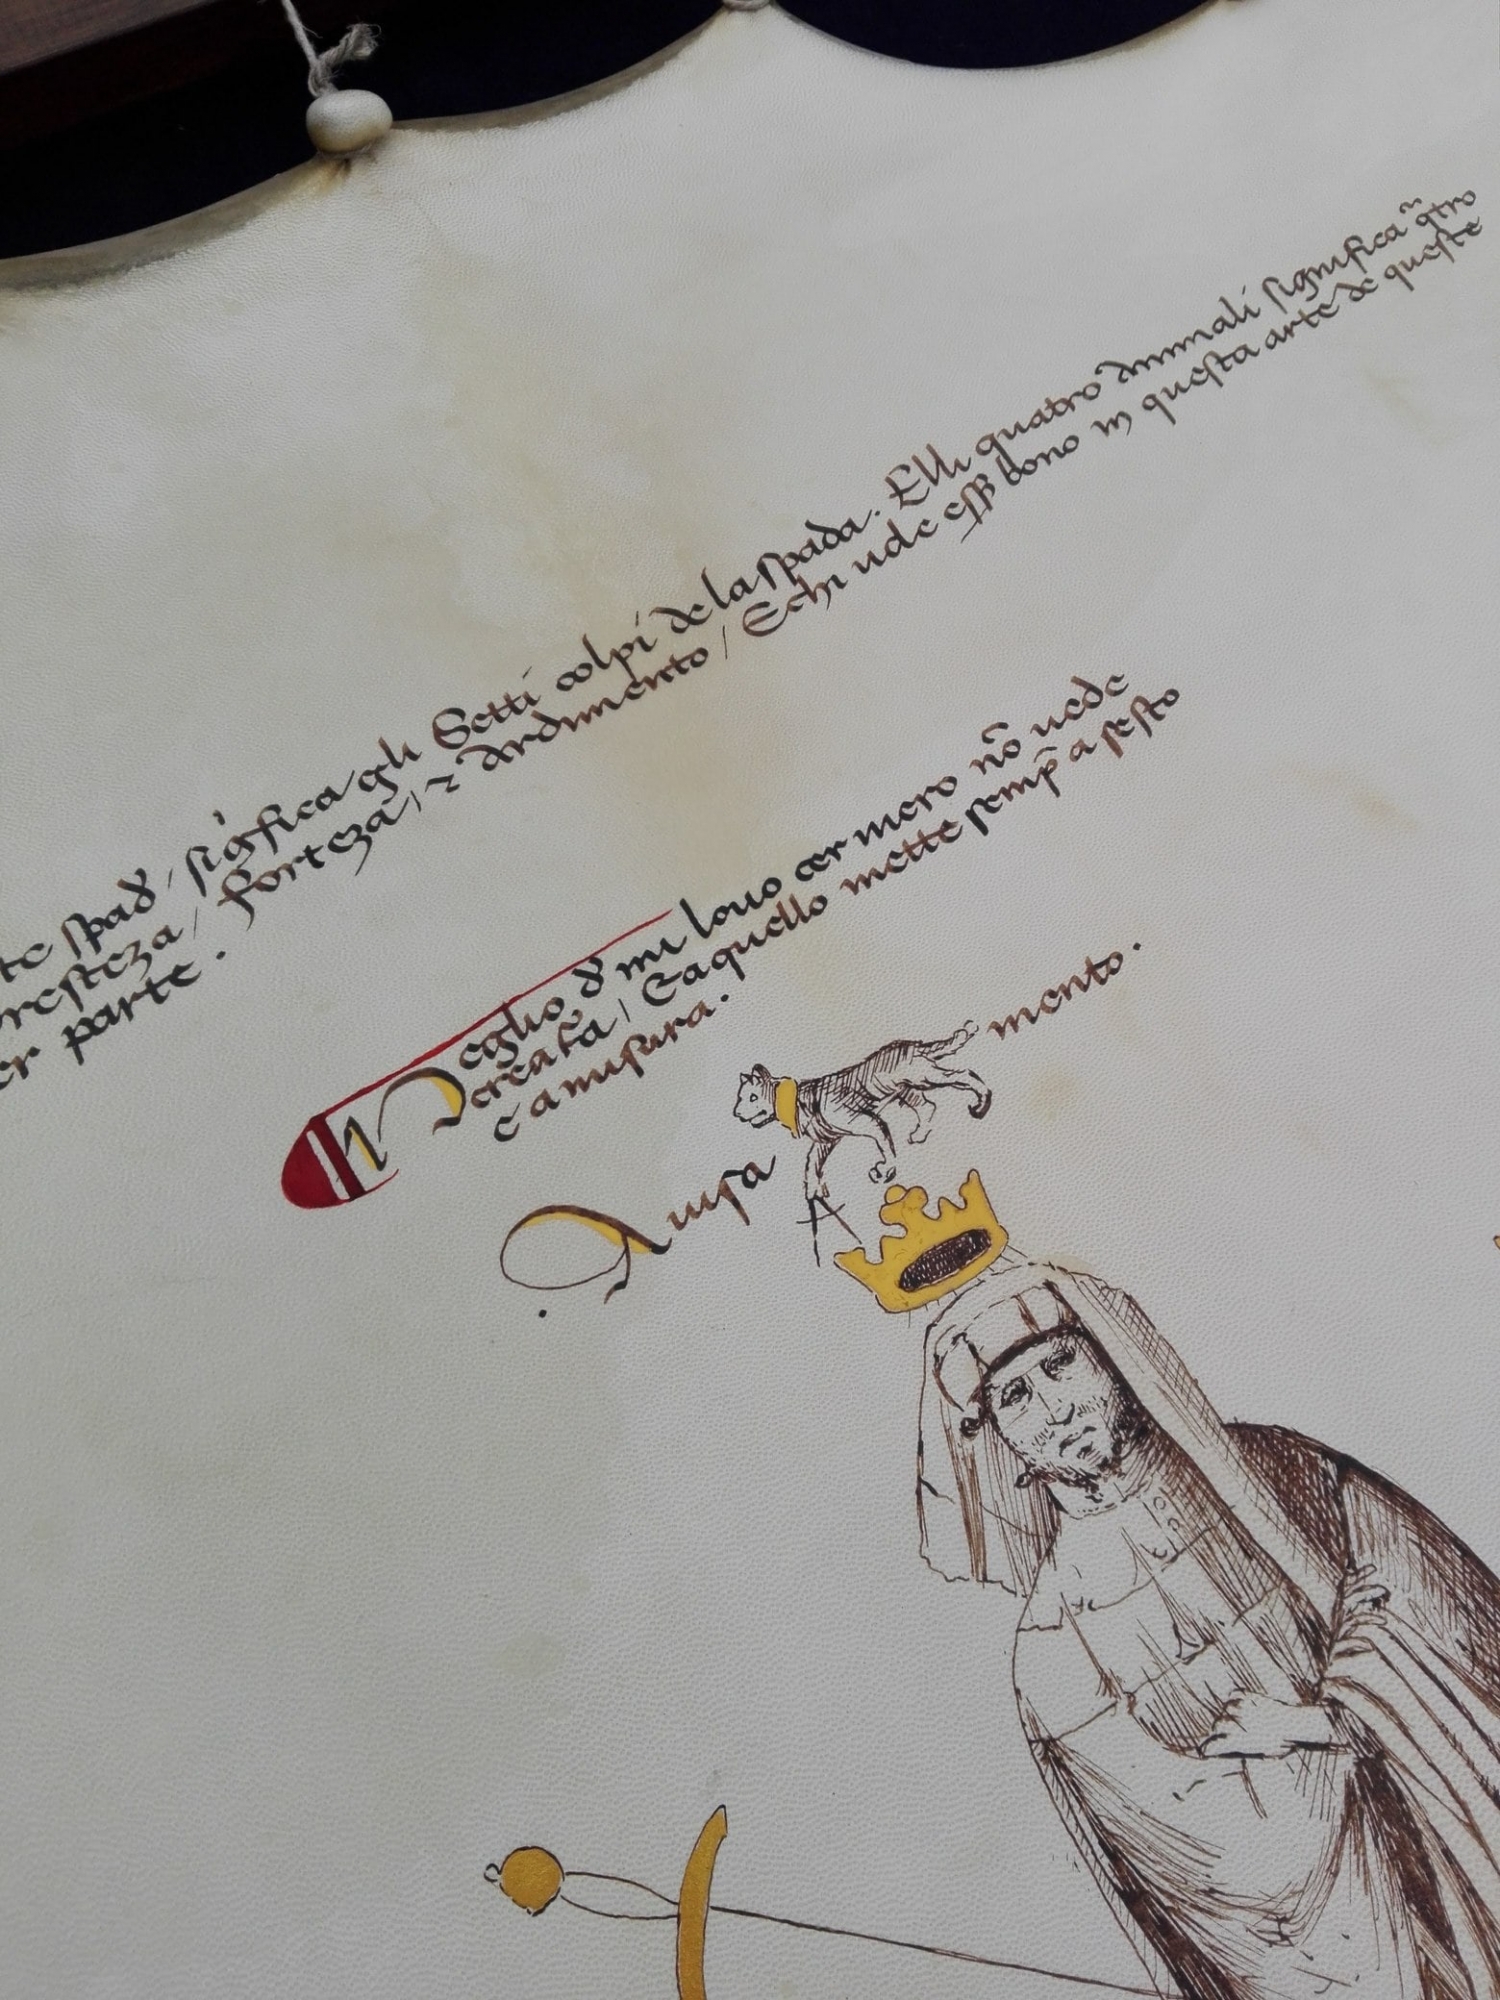 te spad / sigȋfica gli Setti colpi de la spada. Elli quatro animali significa q̃tro
presteza / forteza / ⁊ ardimento / E chi vole eſſ bono in questa arte de queste
er parte.
Meglio d mi lovo cervero nõ uede
creatã / E aquello mette semp̃ a sesto
e a misura.
Auisa mento.